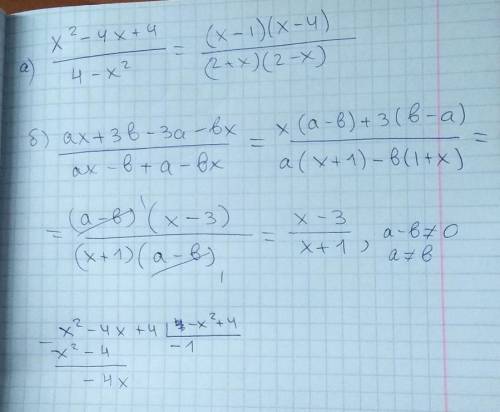 а) (x² - 4x + 4)/(4 - x²) = ((x - 1)(x - 4))/((2+x)(2-x))
б) (ax + 3в - 3a - вx)/(ax - в + a - вx) = (x(a-в) + 3(в-a))/(a(x+1) - в(1+x)) =
= ((a-в)¹(x-3))/((x+1)(a-в)₁) = (x-3)/(x+1), a-в≠0
a≠в
- x² - 4x + 4 | -x² + 4
x² - 4 | -1
- 4x